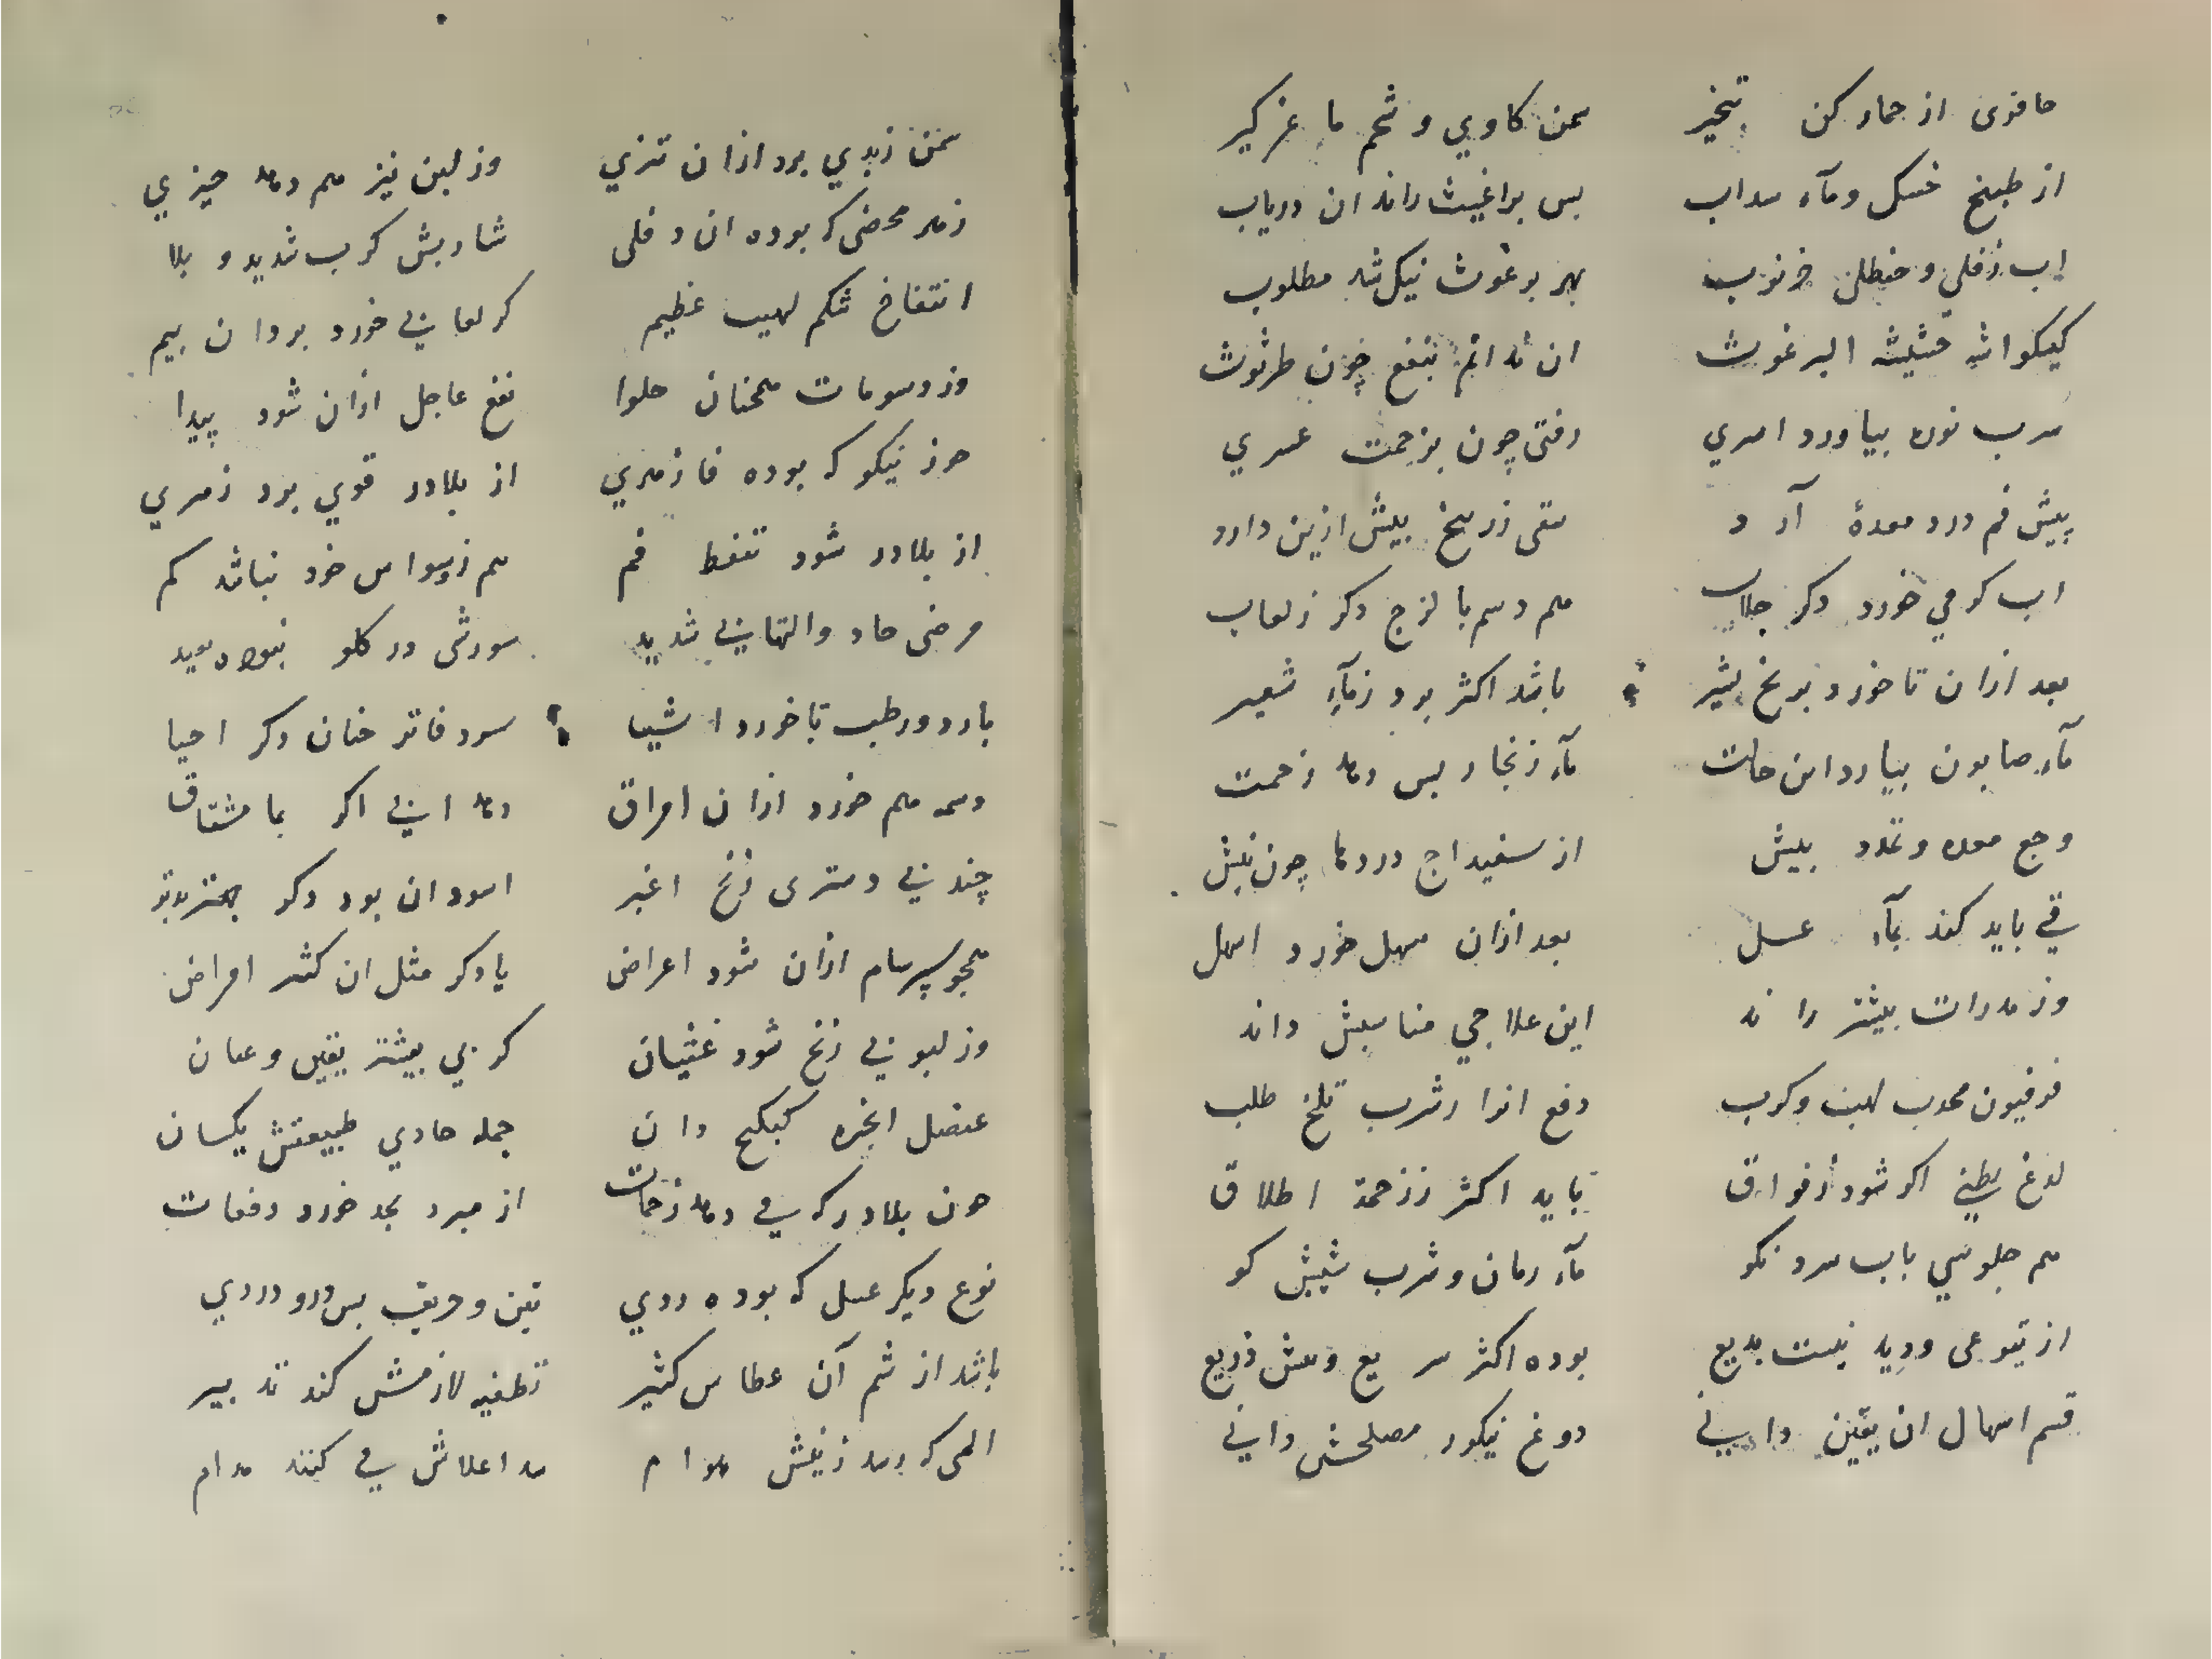 حافری از حمار کن تبخیر سمن کاوی و شحم ماعز گیر
از طبیخ خسک و مآء سداب بس براغیث راند ان دریاب
اب دفلی و حنظل خرنوب بهر برغوث نیک شد مطلوب
کیکواشه حشیشه البرغوث ان
شرب نوره بیاورد امری رفتی چون بزحمت عسری
پیش فم درد معدهٔ آرد سقی زرنیخ بیش ازین دارد
اب گرمی خورد دگر جلاب هم دسم با لزج دگر ز لعاب
بعد ازان تا خورد برنج بشیر باشد اکثر برد ز مآء شعیر
مآء صابون بیارد این حالت مآء زنجار بس دهد زحمت
وجع معده و تمدد بیش از سفیداج دردها چون نیش
قی باید کند بمآء عسل بعد ازان سهل خورد اسهل
وز مدرات بیشتر راند این علاجی مناسبش داند
فرفیون محدب لهیب و کرب دفع انرا بشرب تلخ طلب
لدغ بطنی اکر شود ز فواق باید اکثر ز زحمة اطلاق
هم جلوسی باب سرد نکو مآء رمان و شرب شیبش کو
از یتوعی ودید نیست بدیع بوده اکثر سریع و بیش ذریع
قسم اسهال ان یقین دانی دوغ نیکو مصلحش دانی
سمن زبدی برد ازان تیزی وز لبن نیز هم دهد چیزی
زهر محضی که بوده ان دفلی شاربش کرب شدید و بلا
انتفاخ شکم لهیب عظیم گر لعابی خورد برد ان بیم
وز دسومات همچنان حلوا نفع عاجل ازان شود پیدا
جوز نیکو که بوده فازهری از بلادر قوی برد زهری
از بلادر شود تنفط فم هم ز وسواس خود نباشد کم
مرض حاد و التهابی شدید سوزشی در گلو
بارد و رطب تا خورد اشیا سود فاتر چنان دگر احیا
دسمه هم خورد ازان امراق دهد ابی اکر بما مشتاق
چند بی دمتری زنخ اغبر اسود ان بود دگر بهتر
همچو سرسام ازان شود اعراض یا دگر مثل ان کثر امراض
وز لبوبی زنخ شود غثیان کربی بیشتر یقین و عیان
عنصل انجره کبیکج دان جمله حادی طبیعتش یکسان
چون بلادر که می دهد زحمات از مبرد بجد خورد دفعات
نوع دیگر عسل که بوده ردی تین و حریف بس درو دردی
باشد از شم آن عطاس کثیر تطفیه لازمش کند تدبیر
المی که رسد ز نیش هوام